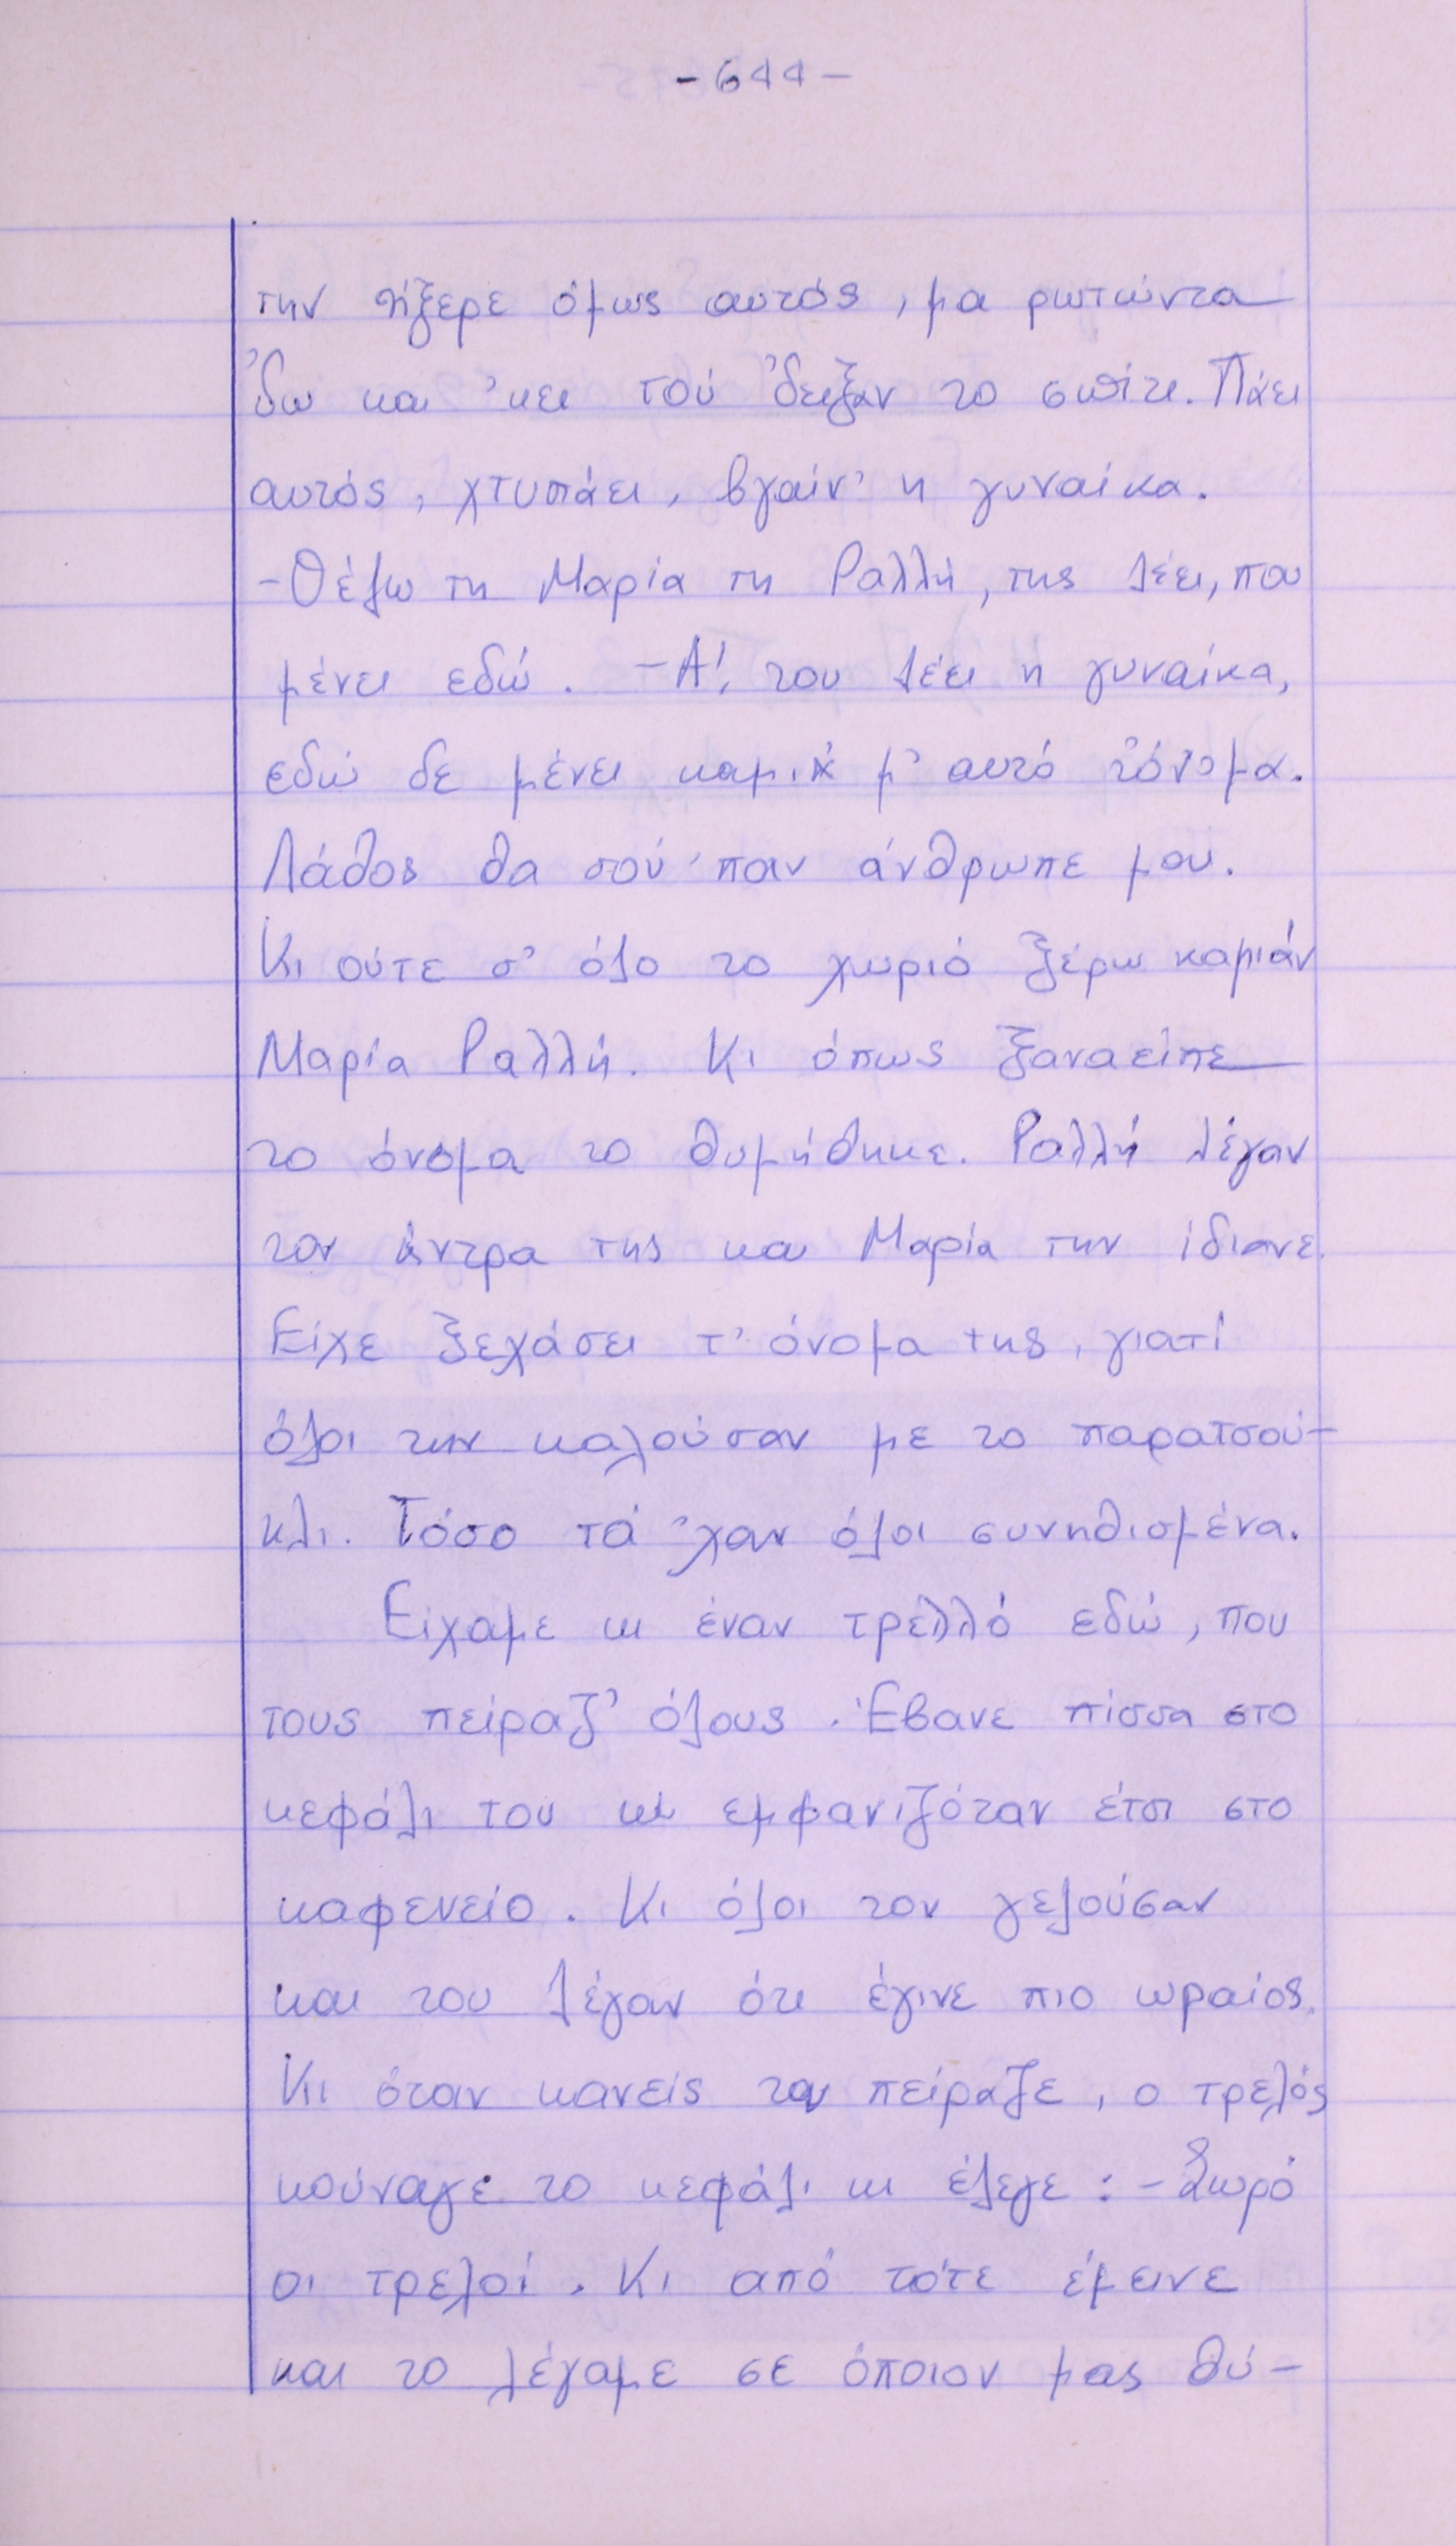 -644-
την ήξερε όμως αυτός, μα ρωτώντα
'δω και 'κει τού 'δειξαν το σπίτι. Πάει
αυτός, χτυπάει, βγαίν' η γυναίκα.
-Θέλω τη Μαρία τη Ραλλή, της λέει, που
μένει εδώ. -Α!, του λέει η γυναίκα,
εδώ δε μένει καμιά μ' αυτό τ' όνομα.
Λάθος θα σού 'παν άνθρωπε μου.
Κι ούτε σ' όλο το χωριό ξέρω καμιάν
Μαρία Ραλλή. Κι όπως ξαναείπε
το όνομα το θυμήθηκε. Ραλλή λέγαν
τον άντρα της και Μαρία την ίδιανε.
Είχε ξεχάσει τ' όνομα της, γιατί
όλοι την καλούσαν με το παρατσού-
κλι. Τόσο τά 'χαν όλοι συνηθισμένα.
Είχαμε κι έναν τρελλό εδώ, που
τους πείραζ' όλους. Έβανε πίσσα στο
κεφάλι του κι εμφανιζόταν έτσι στο
καφενείο. Κι όλοι τον γελούσαν
και του λέγαν ότι έγινε πιο ωραίος.
Κι όταν κανείς τον πείραζε, ο τρελός
κούναγε το κεφάλι κι έλεγε: - Σωρό
οι τρελοί. Κι από τότε έμεινε
και το λέγαμε σε όποιον μας θύ-